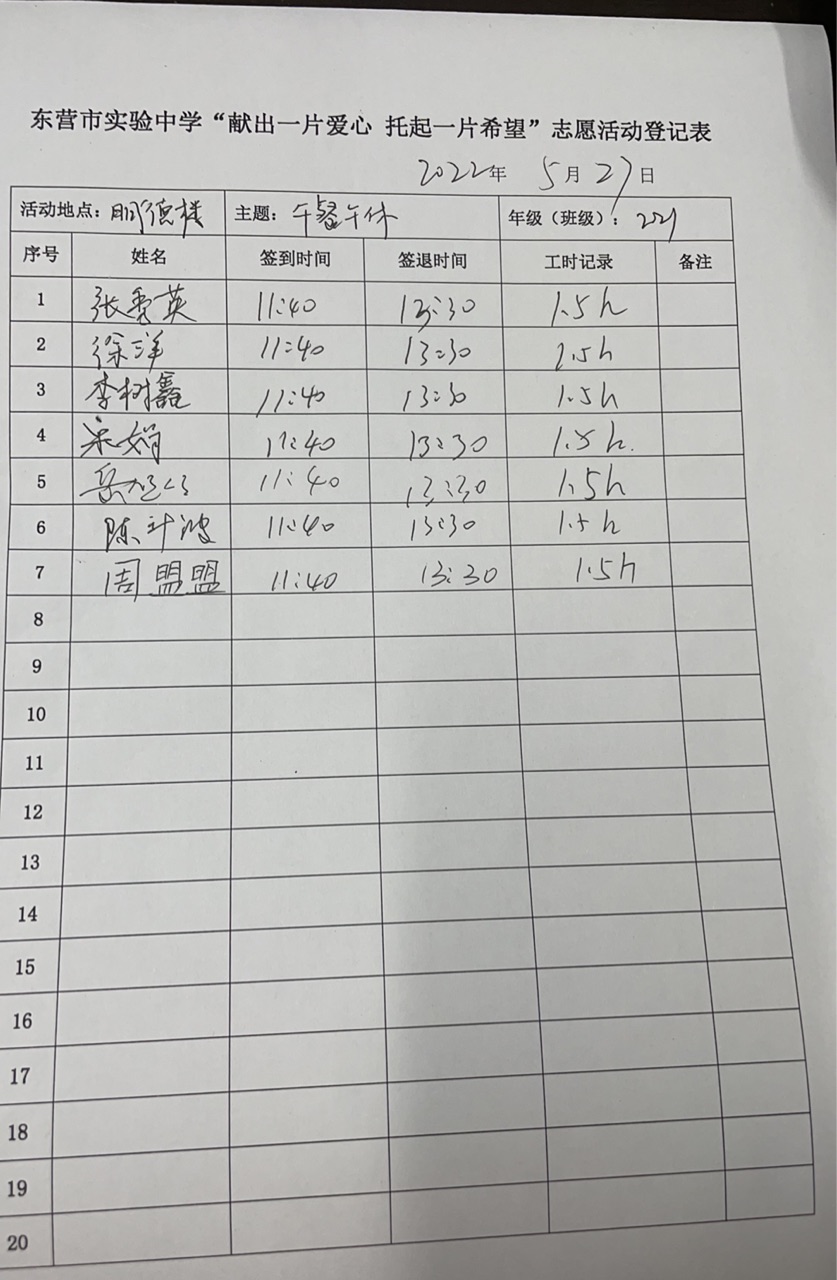 东营市实验中学“献出一片爱心 托起一片希望”志愿活动登记表
2022年 5月27日
活动地点：明德楼 主题：午餐午休 年级（班级）：221
序号 姓名 签到时间 签退时间 工时记录 备注
1 张秀英 11:40 13:30 1.5h
2 徐洋 11:40 13:30 1.5h
3 李树鑫 11:40 13:30 1.5h
4 宋娟 11:40 13:30 1.5h.
5 11:40 13:30 1.5h
6 陈 11:40 13:30 1.5h
7 周盟盟 11:40 13:30 1.5h
8
9
10
11
12
13
14
15
16
17
18
19
20